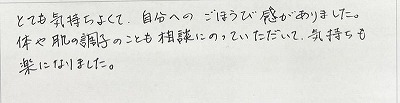 とても気持ちよくて、自分への ごほうび感がありました。
体や肌の調子のことも相談にのっていただいて、気持ちも
楽になりました。